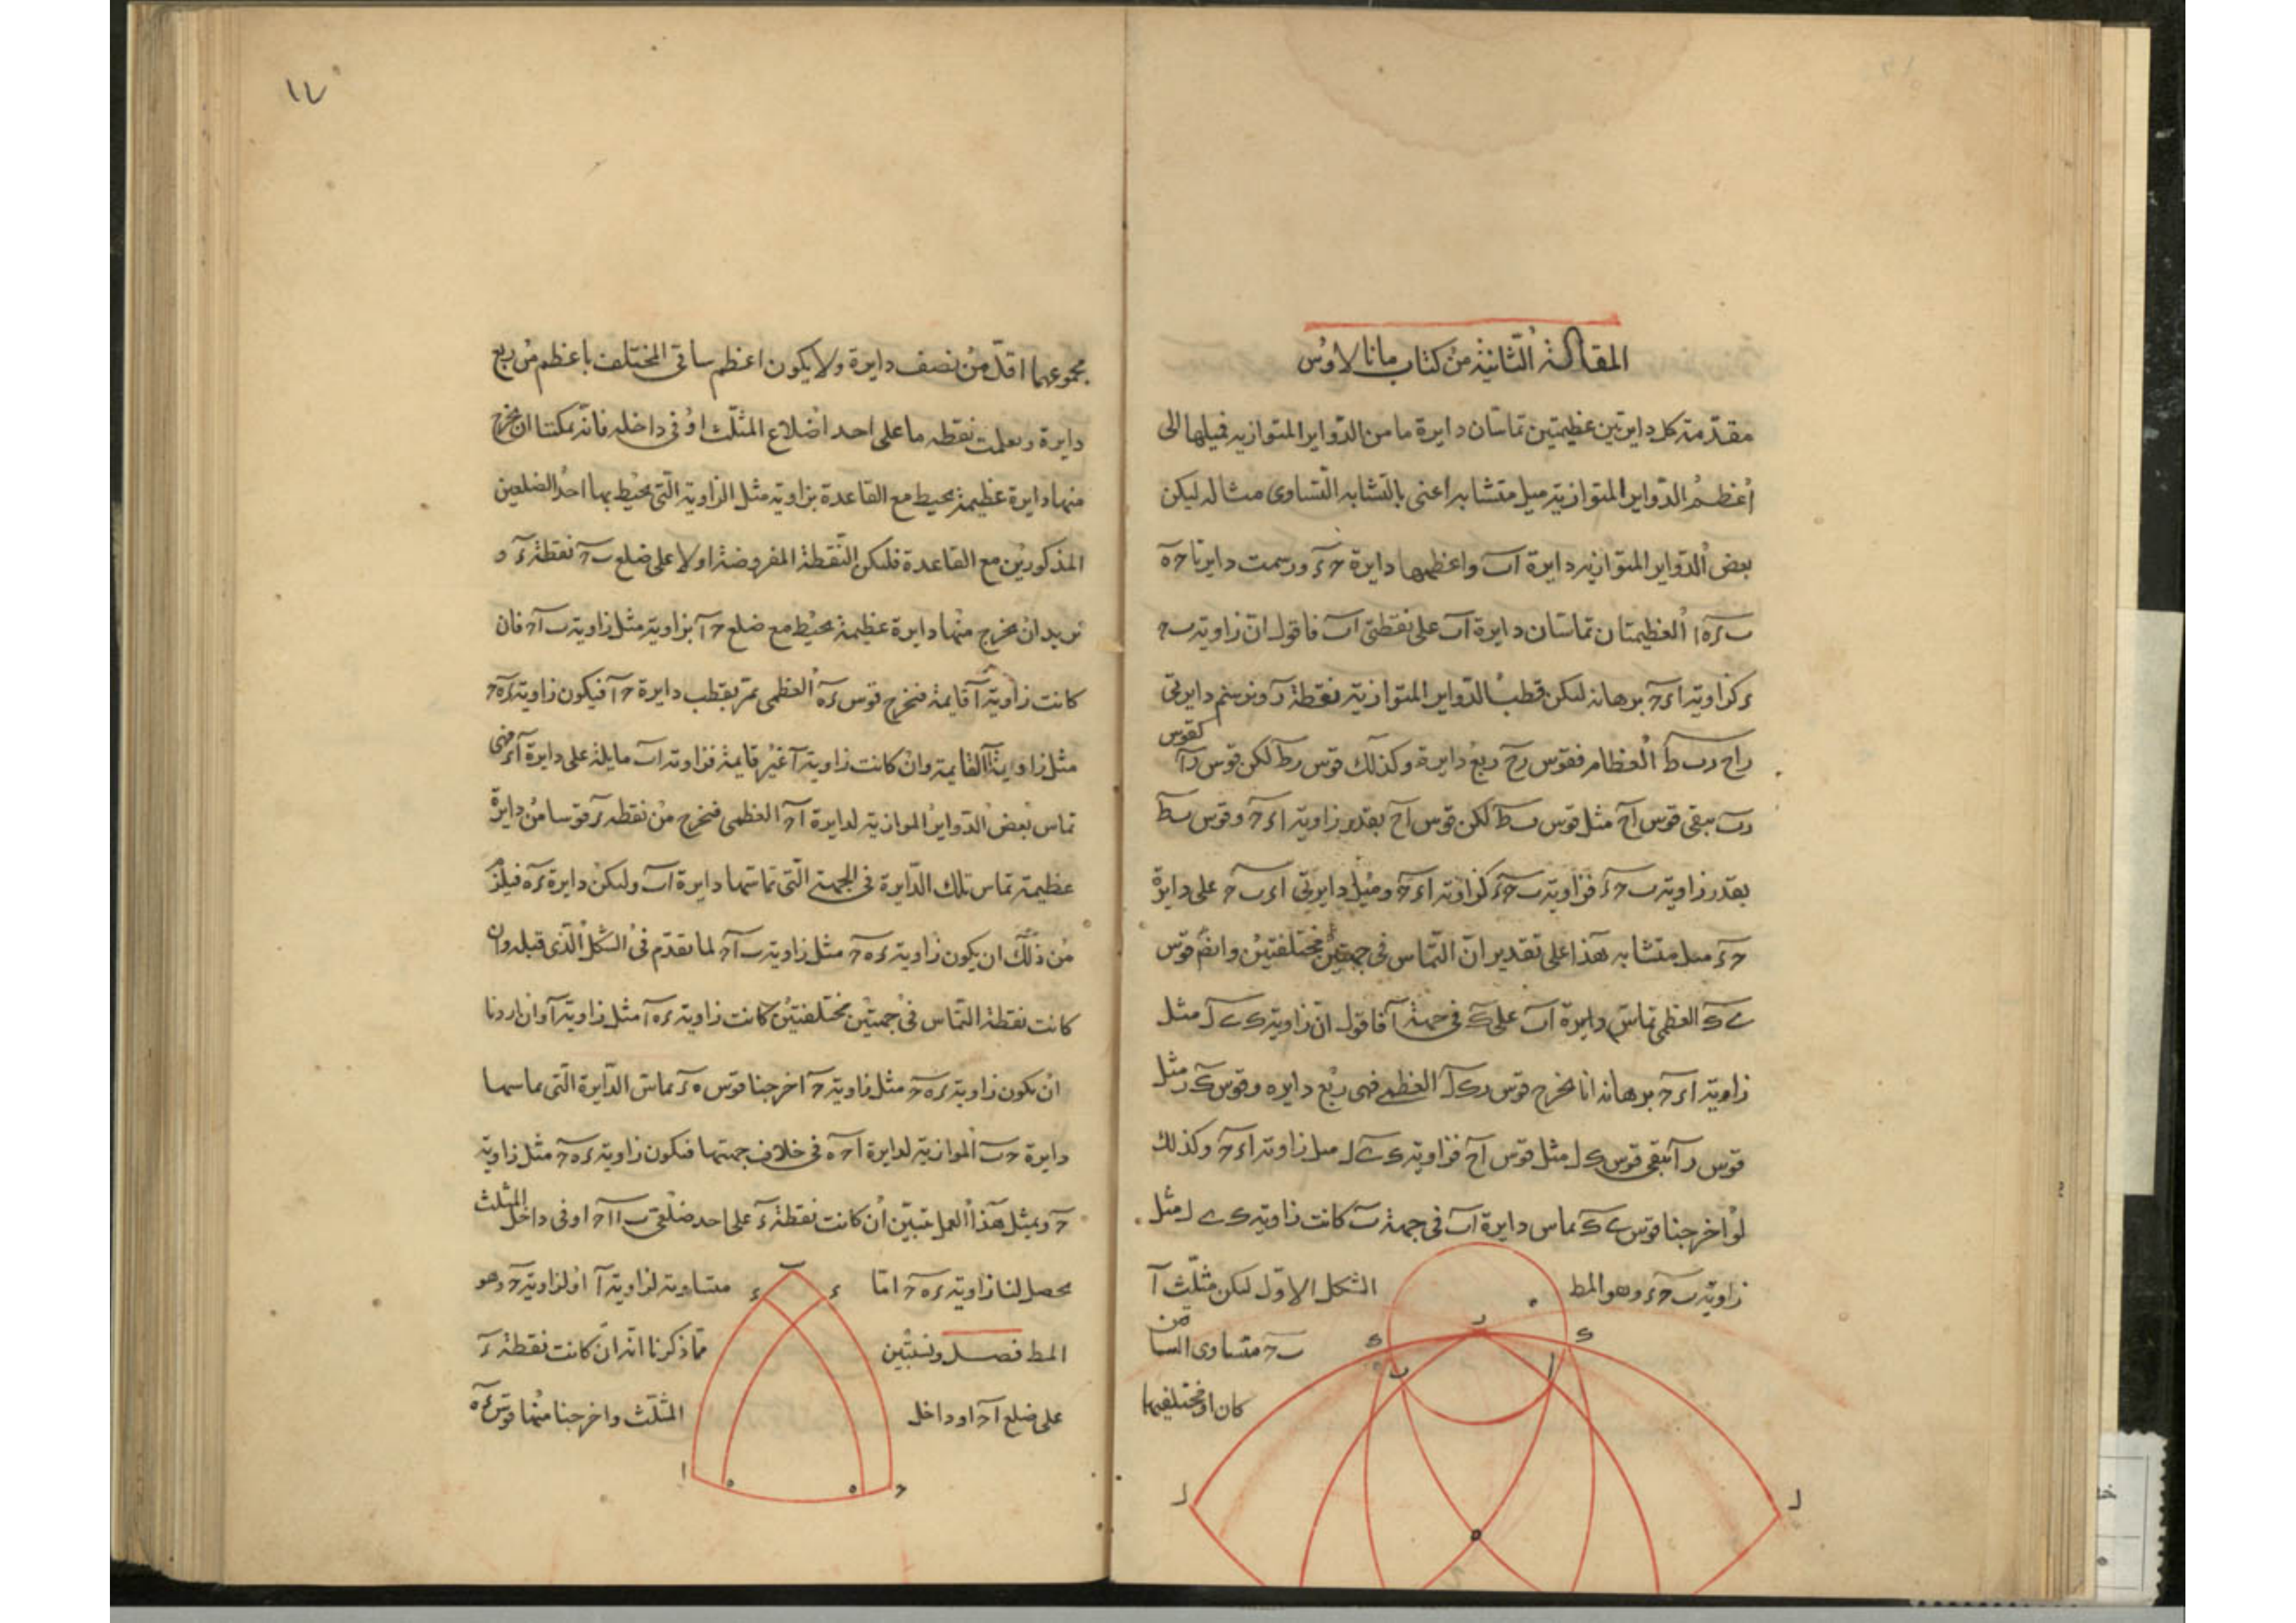 المقالة الثانية من كتاب مانالاوس
مقدمة كل دايرتين عظيمتين تماسان دايرة ما من الدواير المتوازية فميلها الى
اعظم الدواير المتوازية ميل متشابه اعنى بالتشابه التساوى مثاله ليكن
بعض الدواير المتوازية دايرة اب واعظمها دايرة حء ورسمت دايرتا حه
ب ء ه ا العظيمتان تماسان دايرة اب على نقطتى اب فاقول ان زاوية ب ح
ء كزاوية ا ء ح برهانه ليكن قطب الدواير المتوازية نقطة ر ونرسم دايرتى
راح رب ط العظام فقوس رح ربع دايرة وكذلك قوس رط لكن قوس را كقوس
رب يبقى قوس اح مثل قوس ب ط لكن قوس اح بقدر زاوية ا ء ح وقوس ب ط
بقدر زاوية ب ح ء فزاوية ب ح ء كزاوية ا ء ح وميل دايرتى ا ء ب ح على دايرة
ح ء ميل متشابه هذا على تقدير ان التماس فى جهتين مختلفتين وايضا قوس
ى ك العظمى تماس دايرة اب على ك فى جهة ا فاقول ان زاوية ك ى ل مثل
زاوية ا ء ح برهانه انا نخرج قوس رك ل العظمى فهى ربع دايره وقوس ك ر مثل
قوس ر ا يبقى قوس ك ل مثل قوس اح فزاوية ك ى ل مثل زاوية ا ء ح وكذلك
لو اخرجنا قوس ى ك تماس دايرة اب فى جهة ب كانت زاوية ك ى ل مثل
زاوية ب ح ء وهو المط الشكل الاول ليكن مثلث ا
ب ح متساوى الساقين
كان او مختلفهما
ر
ك ك
ب ا
ل ل
ه
١٧
مجموعهما اقل من نصف دايرة ولا يكون اعظم ساقى المختلف باعظم من ربع
دايرة وتعلمت نقطه ما على احد اضلاع المثلث او فى داخله فانه يمكننا ان نخرج
منها دايرة عظيمة يحيط مع القاعدة بزاوية مثل الزاوية التى يحيط بها احد الضلعين
المذكورين مع القاعدة فلتكن النقطة المفروضة اولا على ضلع ب ح نقطة ء و
نريد ان نخرج منها دايرة عظيمة يحيط مع ضلع ح ا بزاوية مثل زاوية ب ا ح فان
كانت زاوية ا قايمة فنخرج قوس ء ه العظمى تمر بقطب دايرة ح ا فيكون زاوية ء ه ح
مثل زاوية ا القايمة وان كانت زاوية ا غير قايمة فزاوية اب مايلة على دايرة ا ح فهى
تماس بعض الدواير الموازية لدايرة ا ح العظمى فنخرج من نقطه ء قوسا من دايرة
عظيمة تماس تلك الدايرة فى الجهة التى تماسها دايرة اب وليكن دايرة ء ه فيلزم
من ذلك ان يكون زاوية ء ه ح مثل زاوية ب ا ح لما تقدم فى الشكل الذى قبله وان
كانت نقطة التماس فى جهتين مختلفتين كانت زاوية ء ه ا مثل زاوية ا وان اردنا
ان يكون زاوية ء ه ح مثل زاوية ح اخرجنا قوس ه ء تماس الدايرة التى تماسها
دايرة ح ب الموازية لدايرة ا ح ه فى خلاف جهتها فتكون زاوية ء ه ح مثل زاوية
ح وبمثل هذا العمل تبين ان كانت نقطة ء على احد ضلعى ب ا ا ح او فى داخل المثلث
يحصل لنا زاوية ء ه ح اما متساوية لزاوية ا او لزاوية ح وهو
المط فصل ونستبين مما ذكرنا انه ان كانت نقطة ء
على ضلع ا ح او داخل المثلث واخرجنا منها قوس ء ه
ب
ء ء
ا ه ه ح